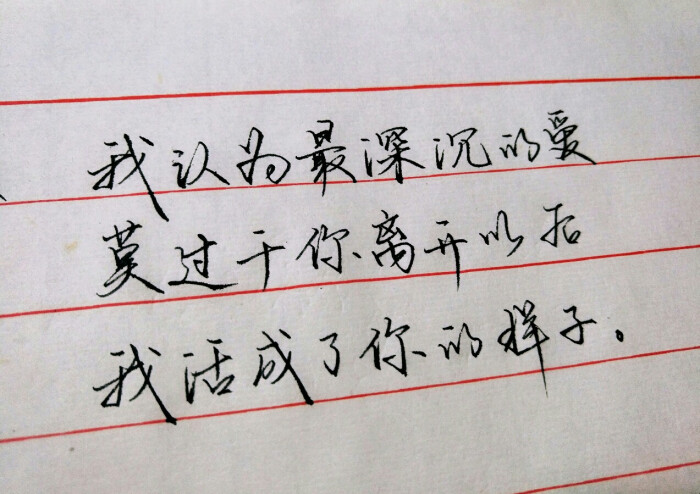 我认为最深沉的爱
莫过于你离开以后
我活成了你的样子。